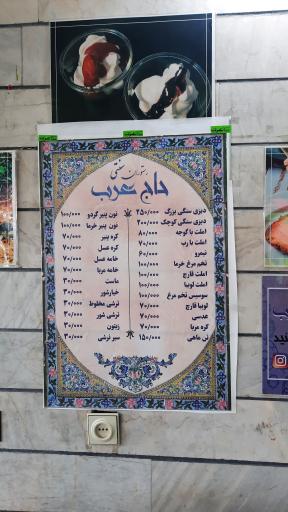 رستوران سنتی
حاج عرب
دیزی سنگی بزرگ ۲۵۰/۰۰۰
دیزی سنگی کوچک ۲۰۰/۰۰۰
املت با گوجه ۸۰/۰۰۰
املت با رب ۷۰/۰۰۰
نیمرو ۶۰/۰۰۰
تخم مرغ خرما ۱۰۰/۰۰۰
املت قارچ ۱۰۰/۰۰۰
املت لوبیا ۱۰۰/۰۰۰
سوسیس تخم مرغ ۱۰۰/۰۰۰
لوبیا قارچ ۷۰/۰۰۰
عدسی ۷۰/۰۰۰
کره مربا ۷۰/۰۰۰
تن ماهی ۱۵۰/۰۰۰
نون پنیر گردو ۱۰۰/۰۰۰
نون پنیر خرما ۱۰۰/۰۰۰
کره پنیر ۷۰/۰۰۰
کره عسل ۷۰/۰۰۰
خامه عسل ۷۰/۰۰۰
خامه مربا ۷۰/۰۰۰
ماست ۳۰/۰۰۰
خیارشور ۳۰/۰۰۰
ترشی مخلوط ۳۰/۰۰۰
ترشی شور ۳۰/۰۰۰
زیتون ۳۰/۰۰۰
سیر ترشی ۳۰/۰۰۰